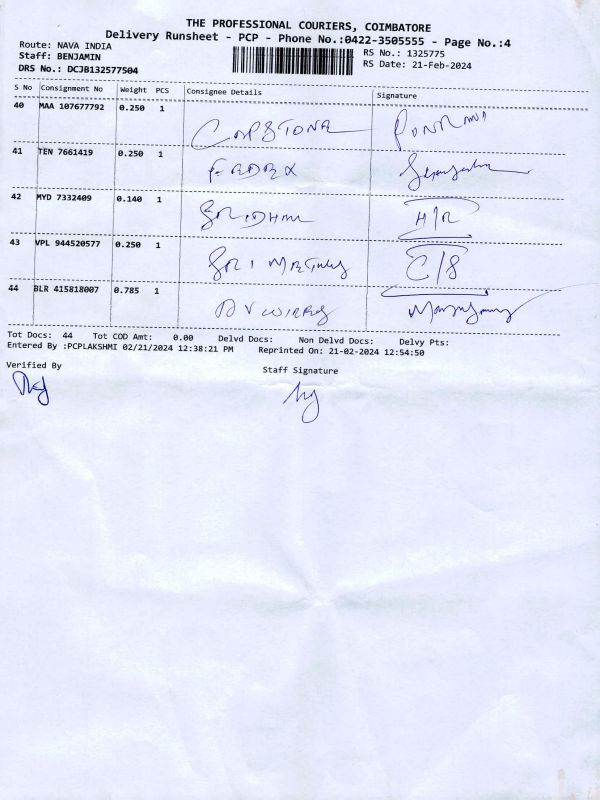 THE PROFESSIONAL COURIERS, COIMBATORE
Delivery Runsheet - PCP - Phone No.:0422-3505555 - Page No.:4
Route: NAVA INDIA
Staff: BENJAMIN
DRS No.: DCJB132577504
RS No.: 1325775
RS Date: 21-Feb-2024
S No Consignment No Weight PCS Consignee Details Signature
40 MAA 107677792 0.250 1 CAPSTONE
41 TEN 7661419 0.250 1 FEDEX
42 MYD 7332409 0.140 1 SRIDHAR H/R
43 VPL 944520577 0.250 1 SRI C/S
44 BLR 415818007 0.785 1
Tot Docs: 44 Tot COD Amt: 0.00 Delvd Docs: Non Delvd Docs: Delvy Pts:
Entered By :PCPLAKSHMI 02/21/2024 12:38:21 PM Reprinted On: 21-02-2024 12:54:50
Verified By
Staff Signature